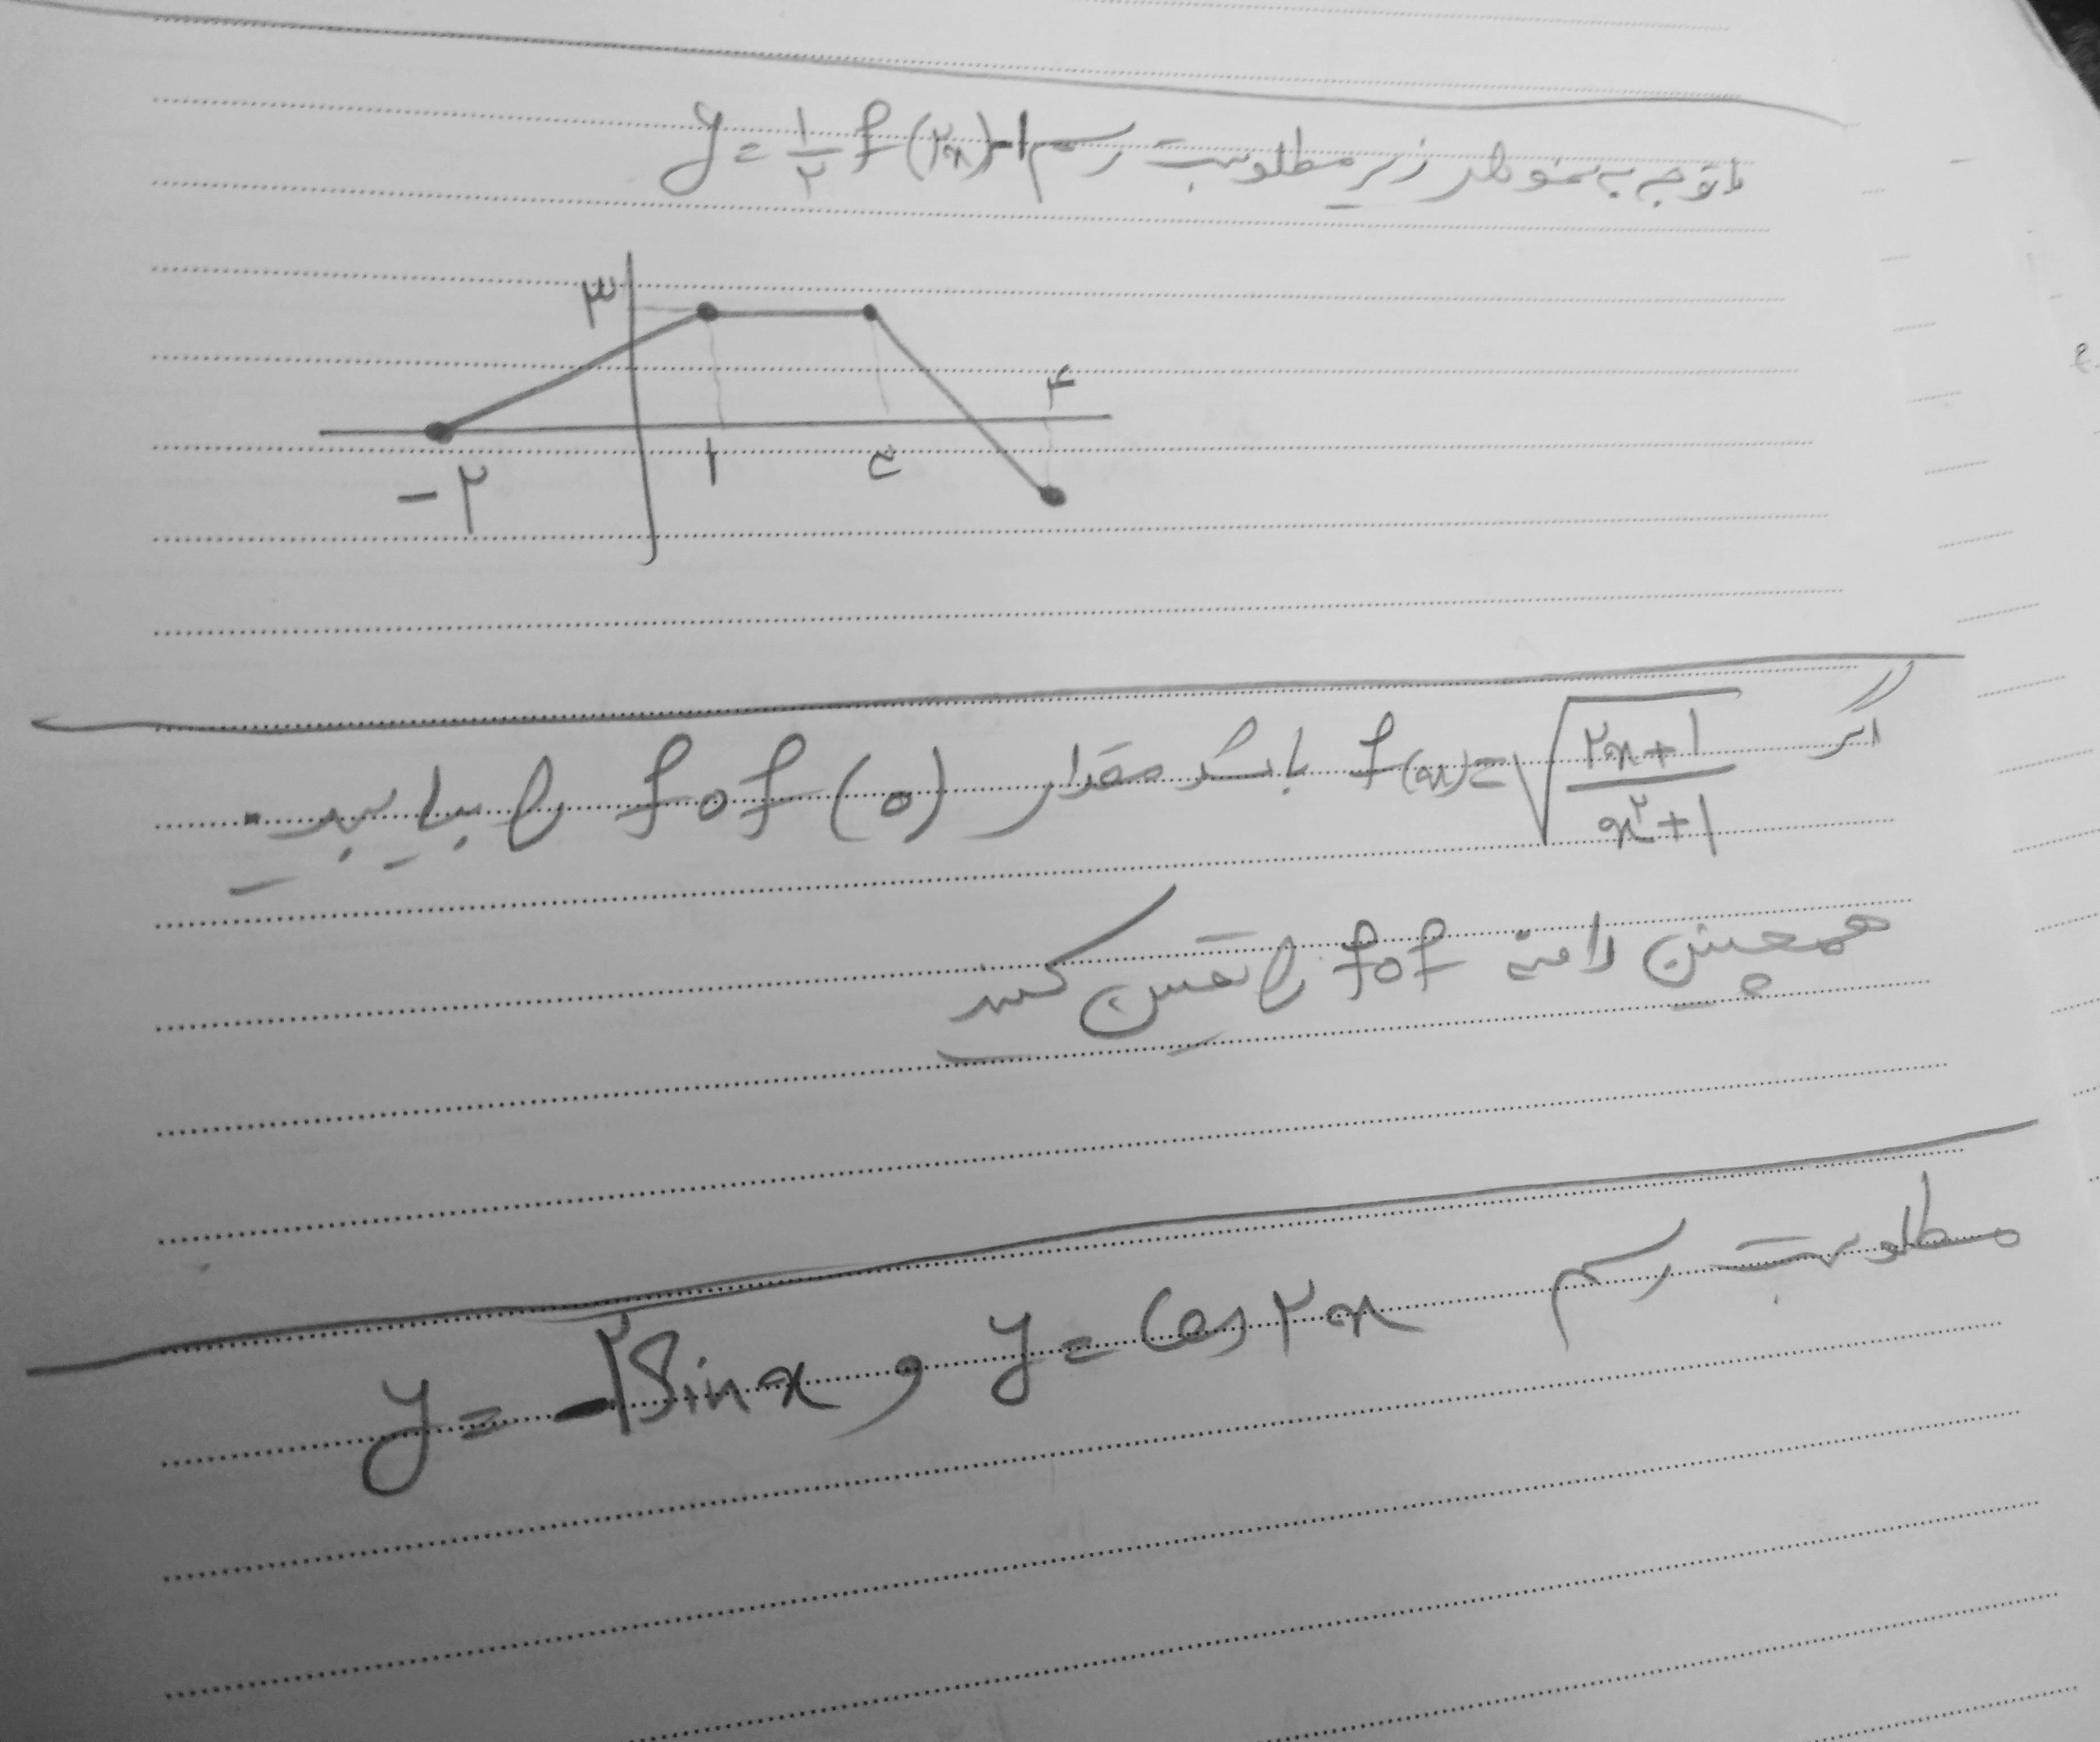 با توجه به نمودار زیر مطلوبست رسم y = ۱/۲ f(۲x)-۱
۳
۴
-۲ ۱
اگر f(x) = √((۲x+۱)/(x²+۱)) باشد مقدار fof(0) را بیابید.
همچنین دامنه fof را تعیین کنید
مطلوبست رسم y = Cos ۲x و y = -۲Sin x